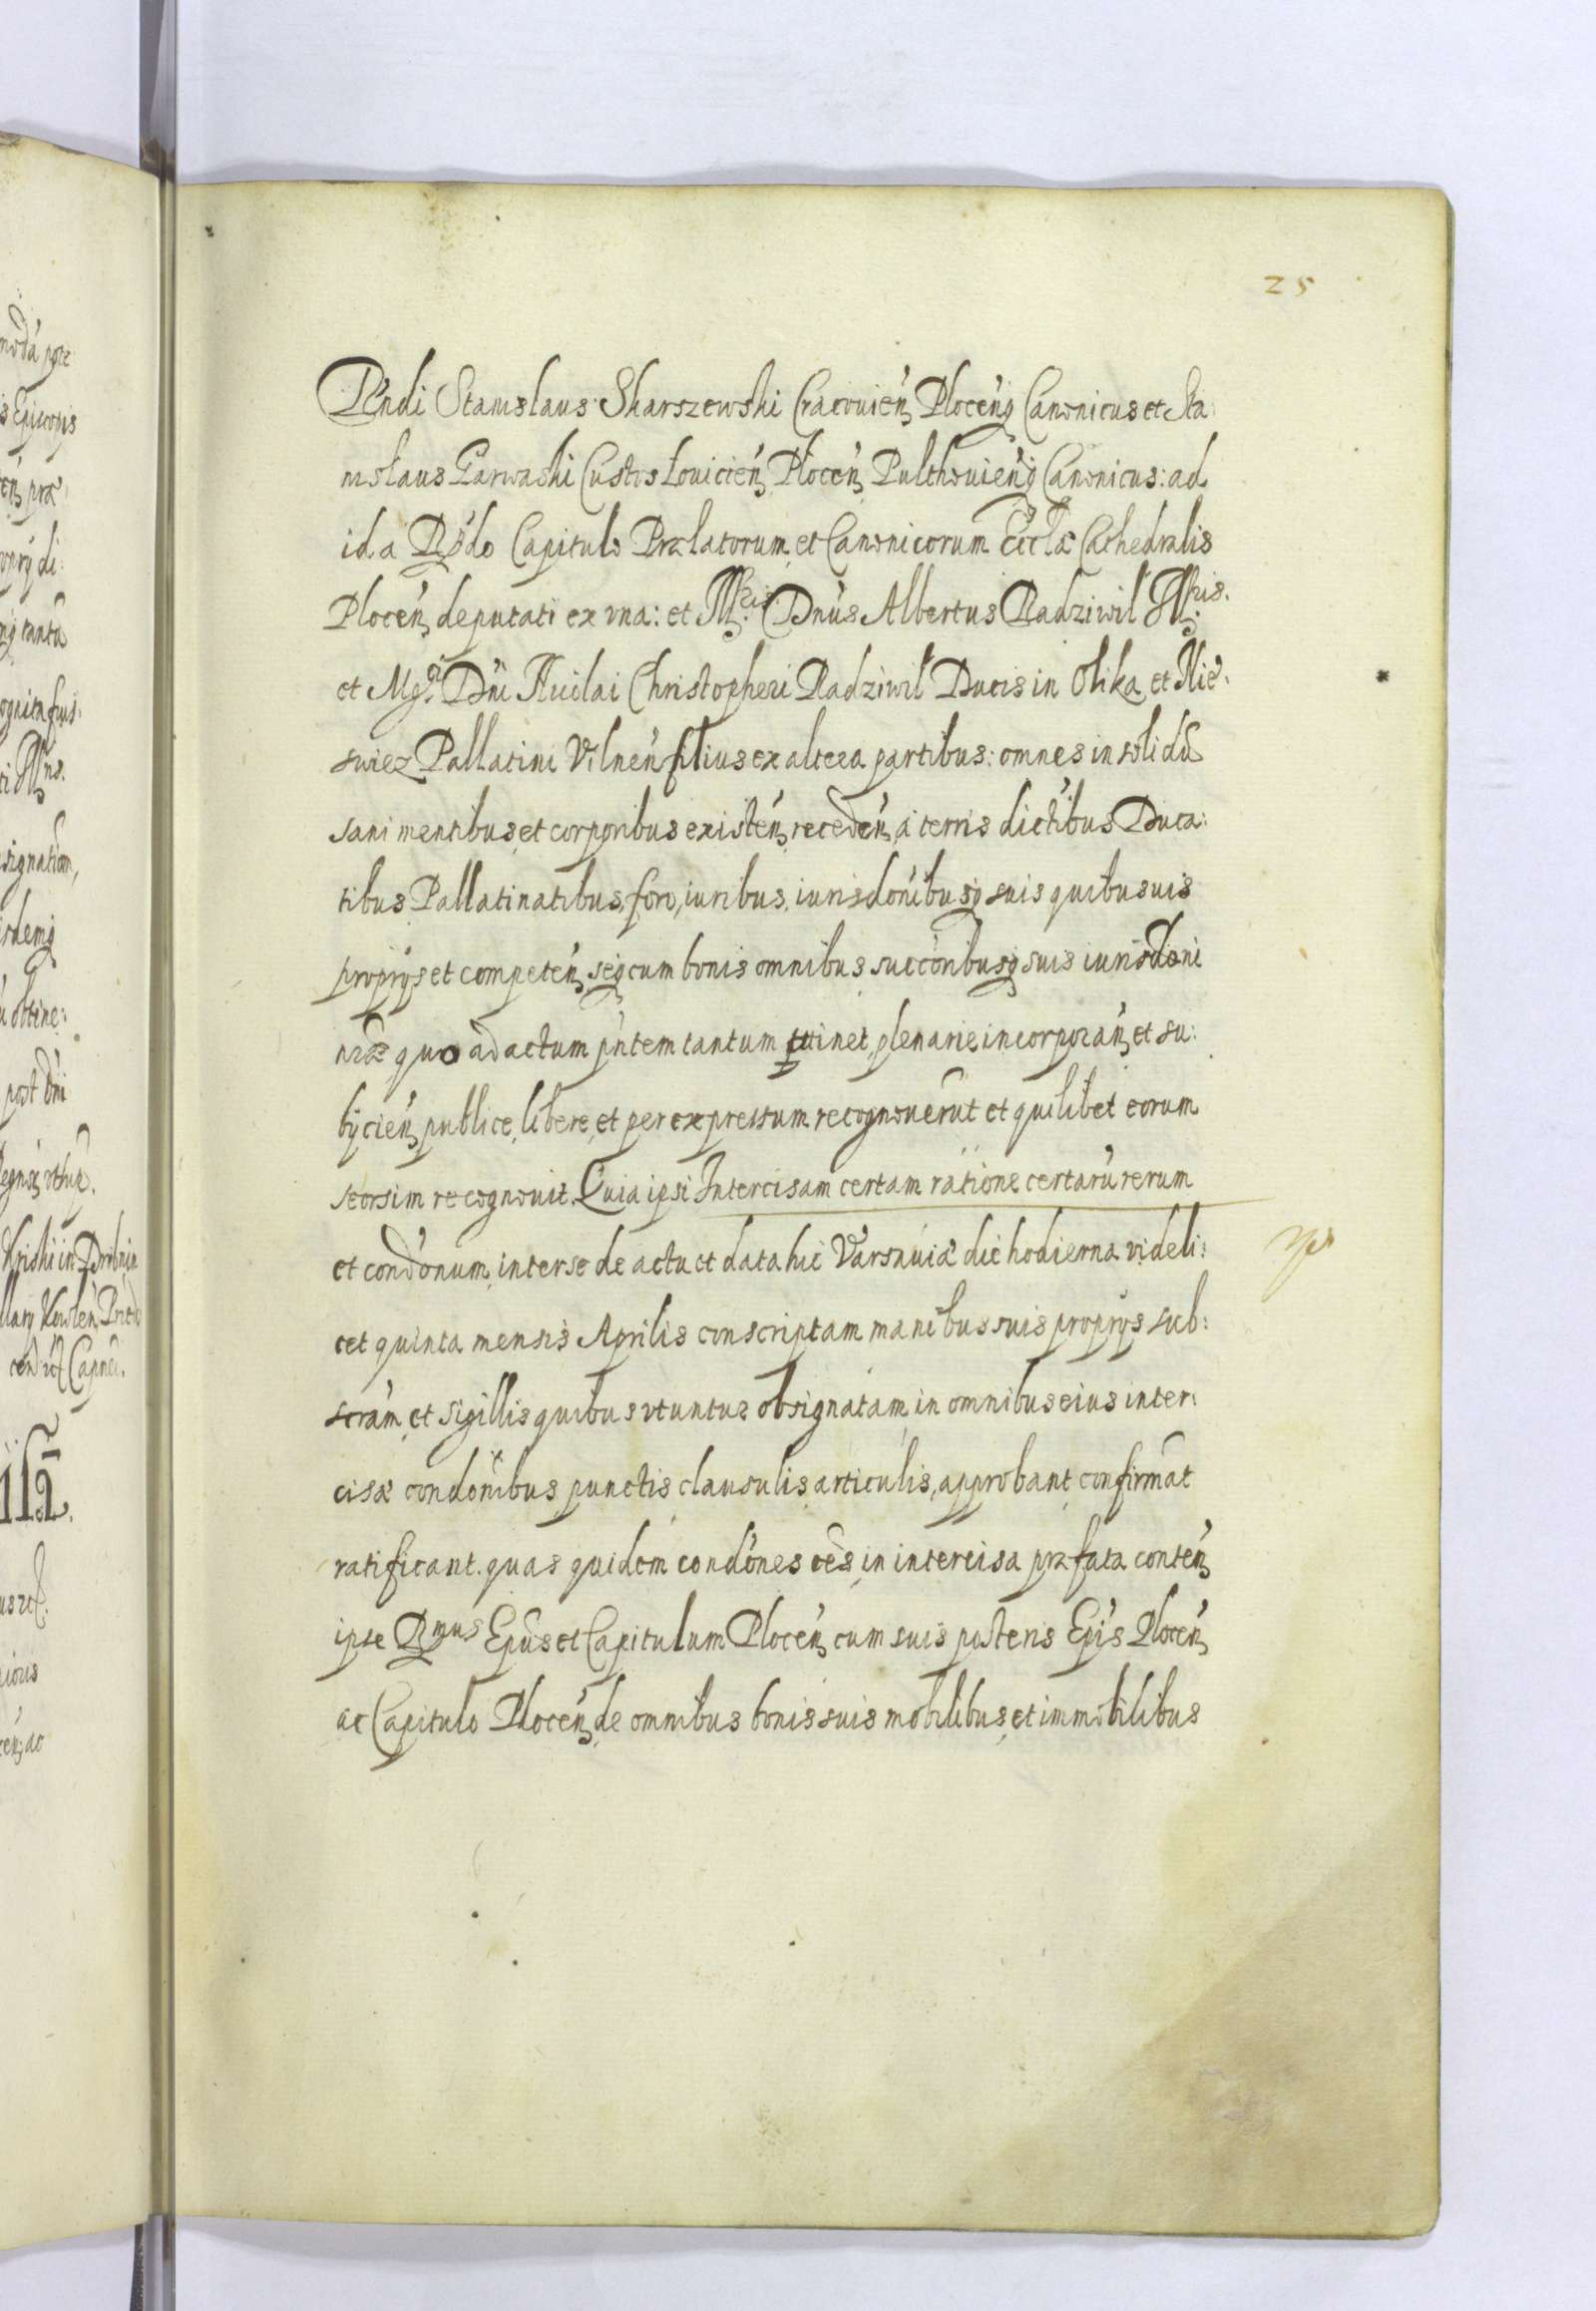 25
Rñdi Stanislaus Skarszewski Cracovień Płoceńq Canonicus et Sta:
nislaus Garwaski Custos Łovicień Płoceń Pulthovieńq Canonicus: ad
id a Rñdo Capitulo Prælatorum et Canonicorum Eccłæ Cathedralis
Ploceń deputati ex vna: et Illris. Dnus Albertus Radziwil Illris.
et Mgci. Dni Nicilai Christopheri Radziwil Ducis in Olika et Nie:
swiez Pallatini Vilneń filius ex altera partibus: omnes in solidũ
sani mentibus et corporibus existeń, recedeń, a terris dictibus Duca:
tibus Pallatinatibus, foro, iuribus, iurisdonibusq suis quibusuis
proprys et competeń, seq cum bonis omnibus succoribusq suis iurisdoni
nræ quo ad actum pñtem tantum attinet, plenarie incorporań, et su:
bijcień, publice, libere, et per expressum recognouerũt et quilibet eorum
seorsim recognouit. Quia ipsi Intercisam certam ratione certarũ rerum
et condonum, inter se de actu et data hic Varsauiæ die hodierna videli:
cet quinta mensis Aprilis conscriptam manibus suis proprys sub:
scrám, et sigillis quibus vtuntur obsignatam, in omnibus eius inter:
cisæ condonibus punctis clausulis articulis, approbant confirmãt
ratificant. quas quidem condones oẽs, in intercisa præfata conteń,
ipse Rmus Epũs et Capitulum Ploceń, cum suis posteris Epis Ploceń,
ac Capitulo Ploceń, de omnibus bonis suis mobilibus, et immobilibus